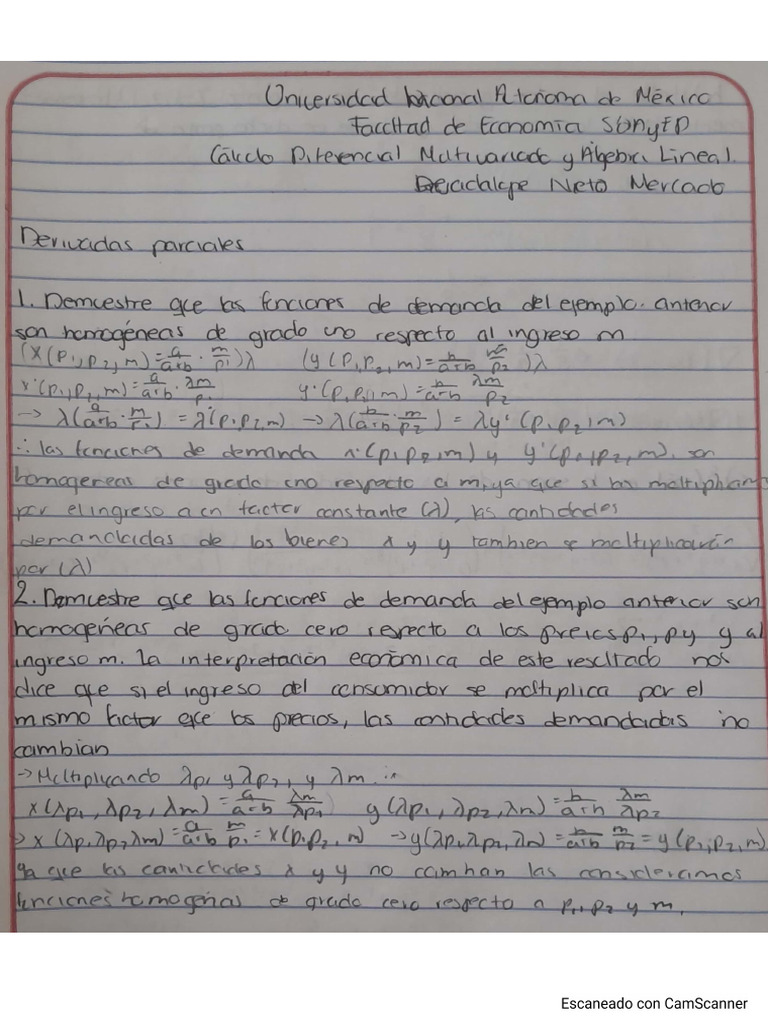 Universidad Nacional Autónoma de México
Facultad de Economía
Cálculo Diferencial Multivariado y Álgebra Lineal.
Guadalupe Nieto Mercado
Derivadas parciales
1. Demuestre que las funciones de demanda del ejemplo. anterior
son homogéneas de grado uno respecto al ingreso m.
(x(p₁,p₂,m)=a/a+b · m/p₁)λ (y(p₁,p₂,m)=b/a+b m/p₂)λ
x·(p₁,p₂,m)=a/a+b · λm/p₁ y·(p₁,p₂,m)=b/a+b λm/p₂
→ λ(a/a+b · m/p₁) = λ(p₁p₂,m) → λ(b/a+b · m/p₂) = λy·(p₁p₂,m)
∴ las funciones de demanda x·(p₁p₂,m) y y·(p₁,p₂,m), son
homogeneas de grado uno respecto a m, ya que si las multiplicam
por el ingreso a un factor constante (λ), las cantidades
demandadas de los bienes x y y tambien se multiplicarán
por (λ)
2. Demuestre que las funciones de demanda del ejemplo anterior son
homogéneas de grado cero respecto a los precios p₁, py y al
ingreso m. la interpretación económica de este resultado nos
dice que si el ingreso del consumidor se multiplica por el
mismo factor que los precios, las cantidades demandadas no
cambian
→ Multiplicando λp₁ y λp₂, y λm ∴
x(λp₁, λp₂, λm) = a/a+b λm/λp₁ y(λp₁, λp₂, λm) = b/a+b λm/λp₂
→ x(λp₁λp₂λm) = a/a+b m/p₁ = x(p₁p₂, m) → y(λp₁λp₂, λm) = b/a+b m/p₂ = y(p₁,p₂,m)
ya que las cantidades x y y no cambian las consideramos
funciones homogéneas de grado cero respecto a p₁, p₂ y m.
Escaneado con CamScanner